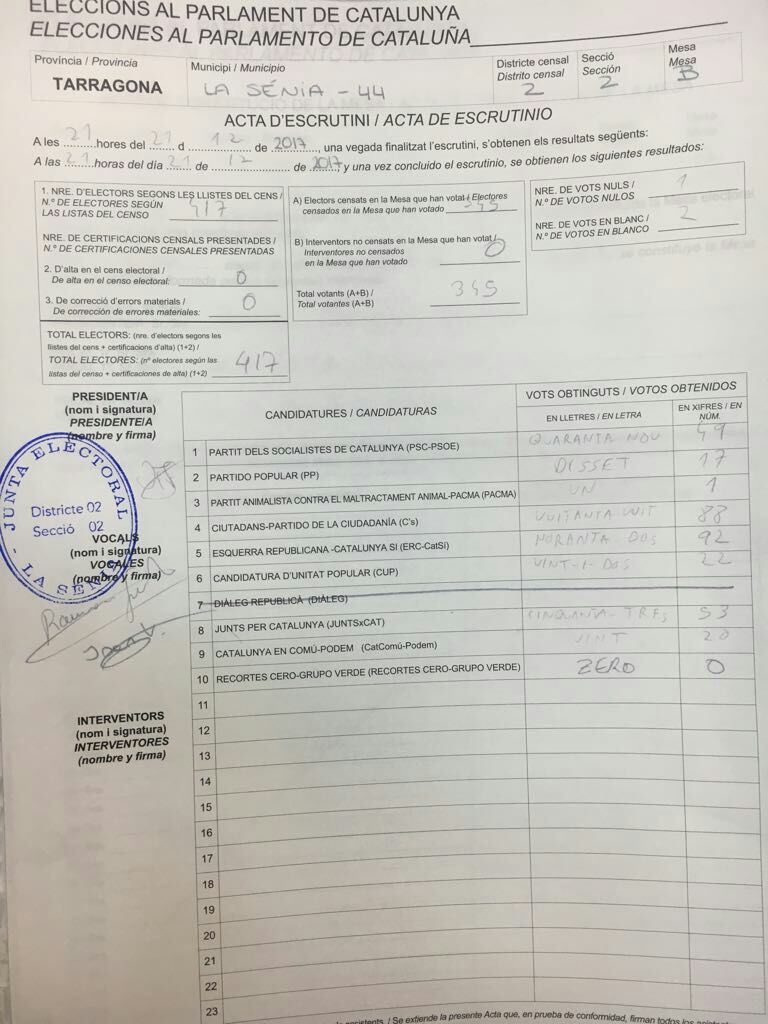 ELECCIONS AL PARLAMENT DE CATALUNYA
ELECCIONES AL PARLAMENTO DE CATALUÑA
Provincia / Provincia
TARRAGONA
Municipi / Municipio
LA SÉNIA - 44
Districte censal
Distrito censal
2
Secció
Sección
2
Mesa
Mesa
B
ACTA D'ESCRUTINI / ACTA DE ESCRUTINIO
A les 21 hores del 21 d 12 de 2017, una vegada finalitzat l'escrutini, s'obtenen els resultats següents:
A las 21 horas del día 21 de 12 de 2017 y una vez concluido el escrutinio, se obtienen los siguientes resultados:
1. NRE. D'ELECTORS SEGONS LES LLISTES DEL CENS /
N.º DE ELECTORES SEGÚN
LAS LISTAS DEL CENSO 417
NRE. DE CERTIFICACIONS CENSALS PRESENTADES /
N.º DE CERTIFICACIONES CENSALES PRESENTADAS
2. D'alta en el cens electoral /
De alta en el censo electoral: 0
3. De correcció d'errors materials /
De corrección de errores materiales: 0
TOTAL ELECTORS: (nre. d'electors segons les
llistes del cens + certificacions d'alta) (1+2) /
TOTAL ELECTORES: (nº electores según las
listas del censo + certificaciones de alta) (1+2) 417
A) Electors censats en la Mesa que han votat / Electores
censados en la Mesa que han votado 345
B) Interventors no censats en la Mesa que han votat /
Interventores no censados
en la Mesa que han votado 0
Total votants (A+B) /
Total votantes (A+B) 345
NRE. DE VOTS NULS /
N.º DE VOTOS NULOS 1
NRE. DE VOTS EN BLANC /
N.º DE VOTOS EN BLANCO 2
PRESIDENT/A
(nom i signatura)
PRESIDENTE/A
(nombre y firma)
JUNTA ELECTORAL
Districte 02
Secció 02
LA SENIA
VOCALS
(nom i signatura)
VOCALES
(nombre y firma)
INTERVENTORS
(nom i signatura)
INTERVENTORES
(nombre y firma)
CANDIDATURES / CANDIDATURAS
VOTS OBTINGUTS / VOTOS OBTENIDOS
EN LLETRES / EN LETRA
EN XIFRES / EN
NÚM.
1 PARTIT DELS SOCIALISTES DE CATALUNYA (PSC-PSOE) QUARANTA NOU 49
2 PARTIDO POPULAR (PP) DISSET 17
3 PARTIT ANIMALISTA CONTRA EL MALTRACTAMENT ANIMAL-PACMA (PACMA) UN 1
4 CIUTADANS-PARTIDO DE LA CIUDADANÍA (C's) VUITANTA VUIT 88
5 ESQUERRA REPUBLICANA -CATALUNYA SI (ERC-CatSí) NORANTA-DOS 92
6 CANDIDATURA D'UNITAT POPULAR (CUP) VINT-I-DOS 22
7 DIÀLEG REPUBLICÀ (DIÀLEG)
8 JUNTS PER CATALUNYA (JUNTSxCAT) CINQUANTA-TRES 53
9 CATALUNYA EN COMÚ-PODEM (CatComú-Podem) VINT 20
10 RECORTES CERO-GRUPO VERDE (RECORTES CERO-GRUPO VERDE) ZERO 0
11
12
13
14
15
16
17
18
19
20
21
22
23
assistents. / Se extiende la presente Acta que, en prueba de conformidad, firman todos los